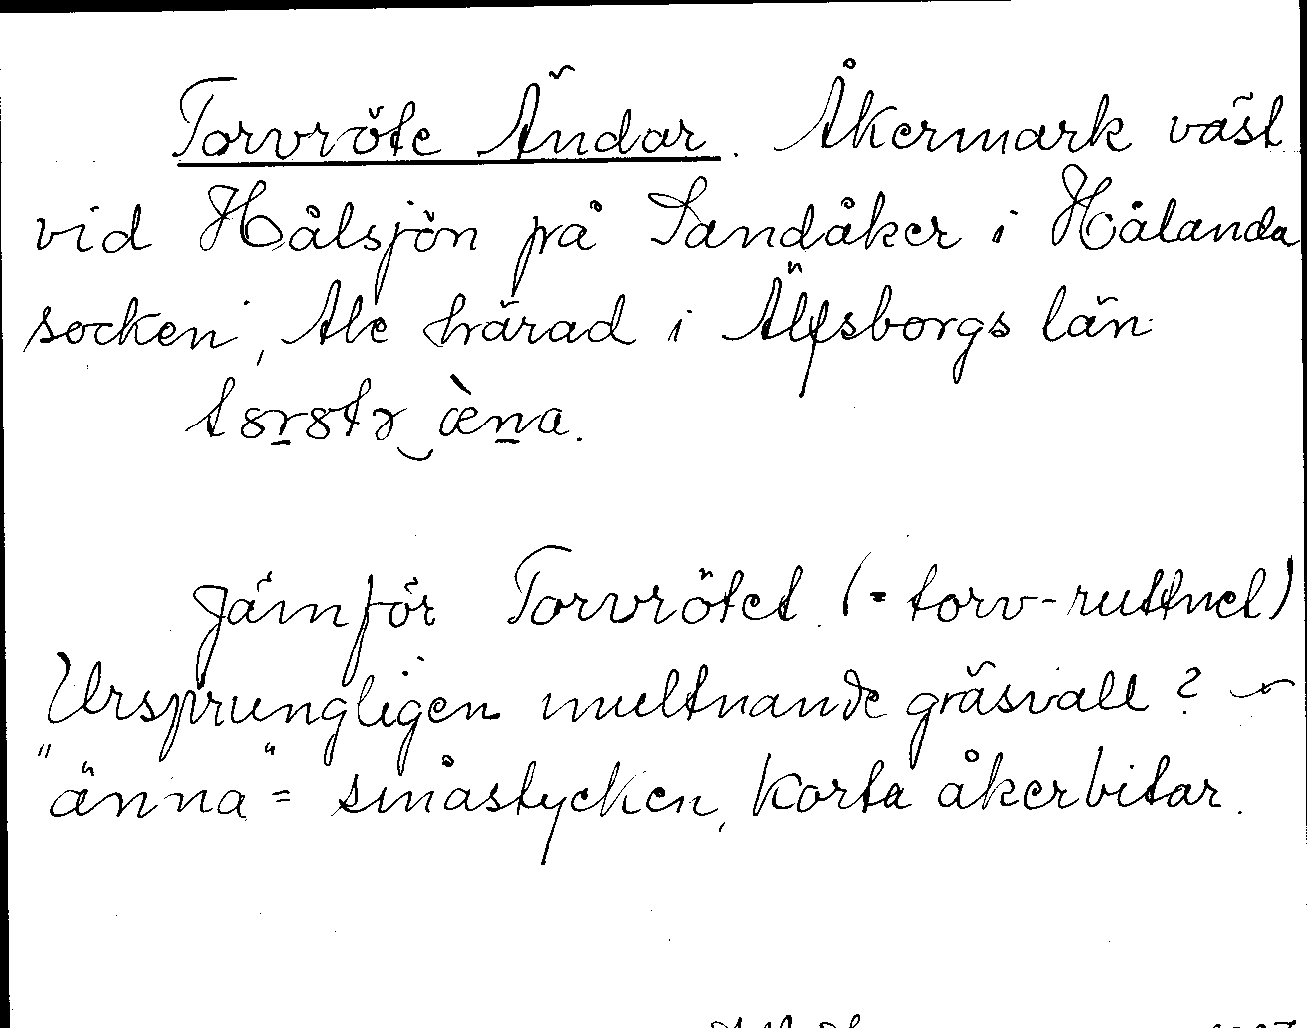 Torvröte Ändar. Åkermark väst
vid Hålsjön på Sandåker i Hålanda
socken, Ale härad i Älfsborgs län
Jämför Torvrötet (= torv-ruttnet)
Ursprungligen multnande gräsvall? -
"änna" = småstycken, korta åkerbitar.